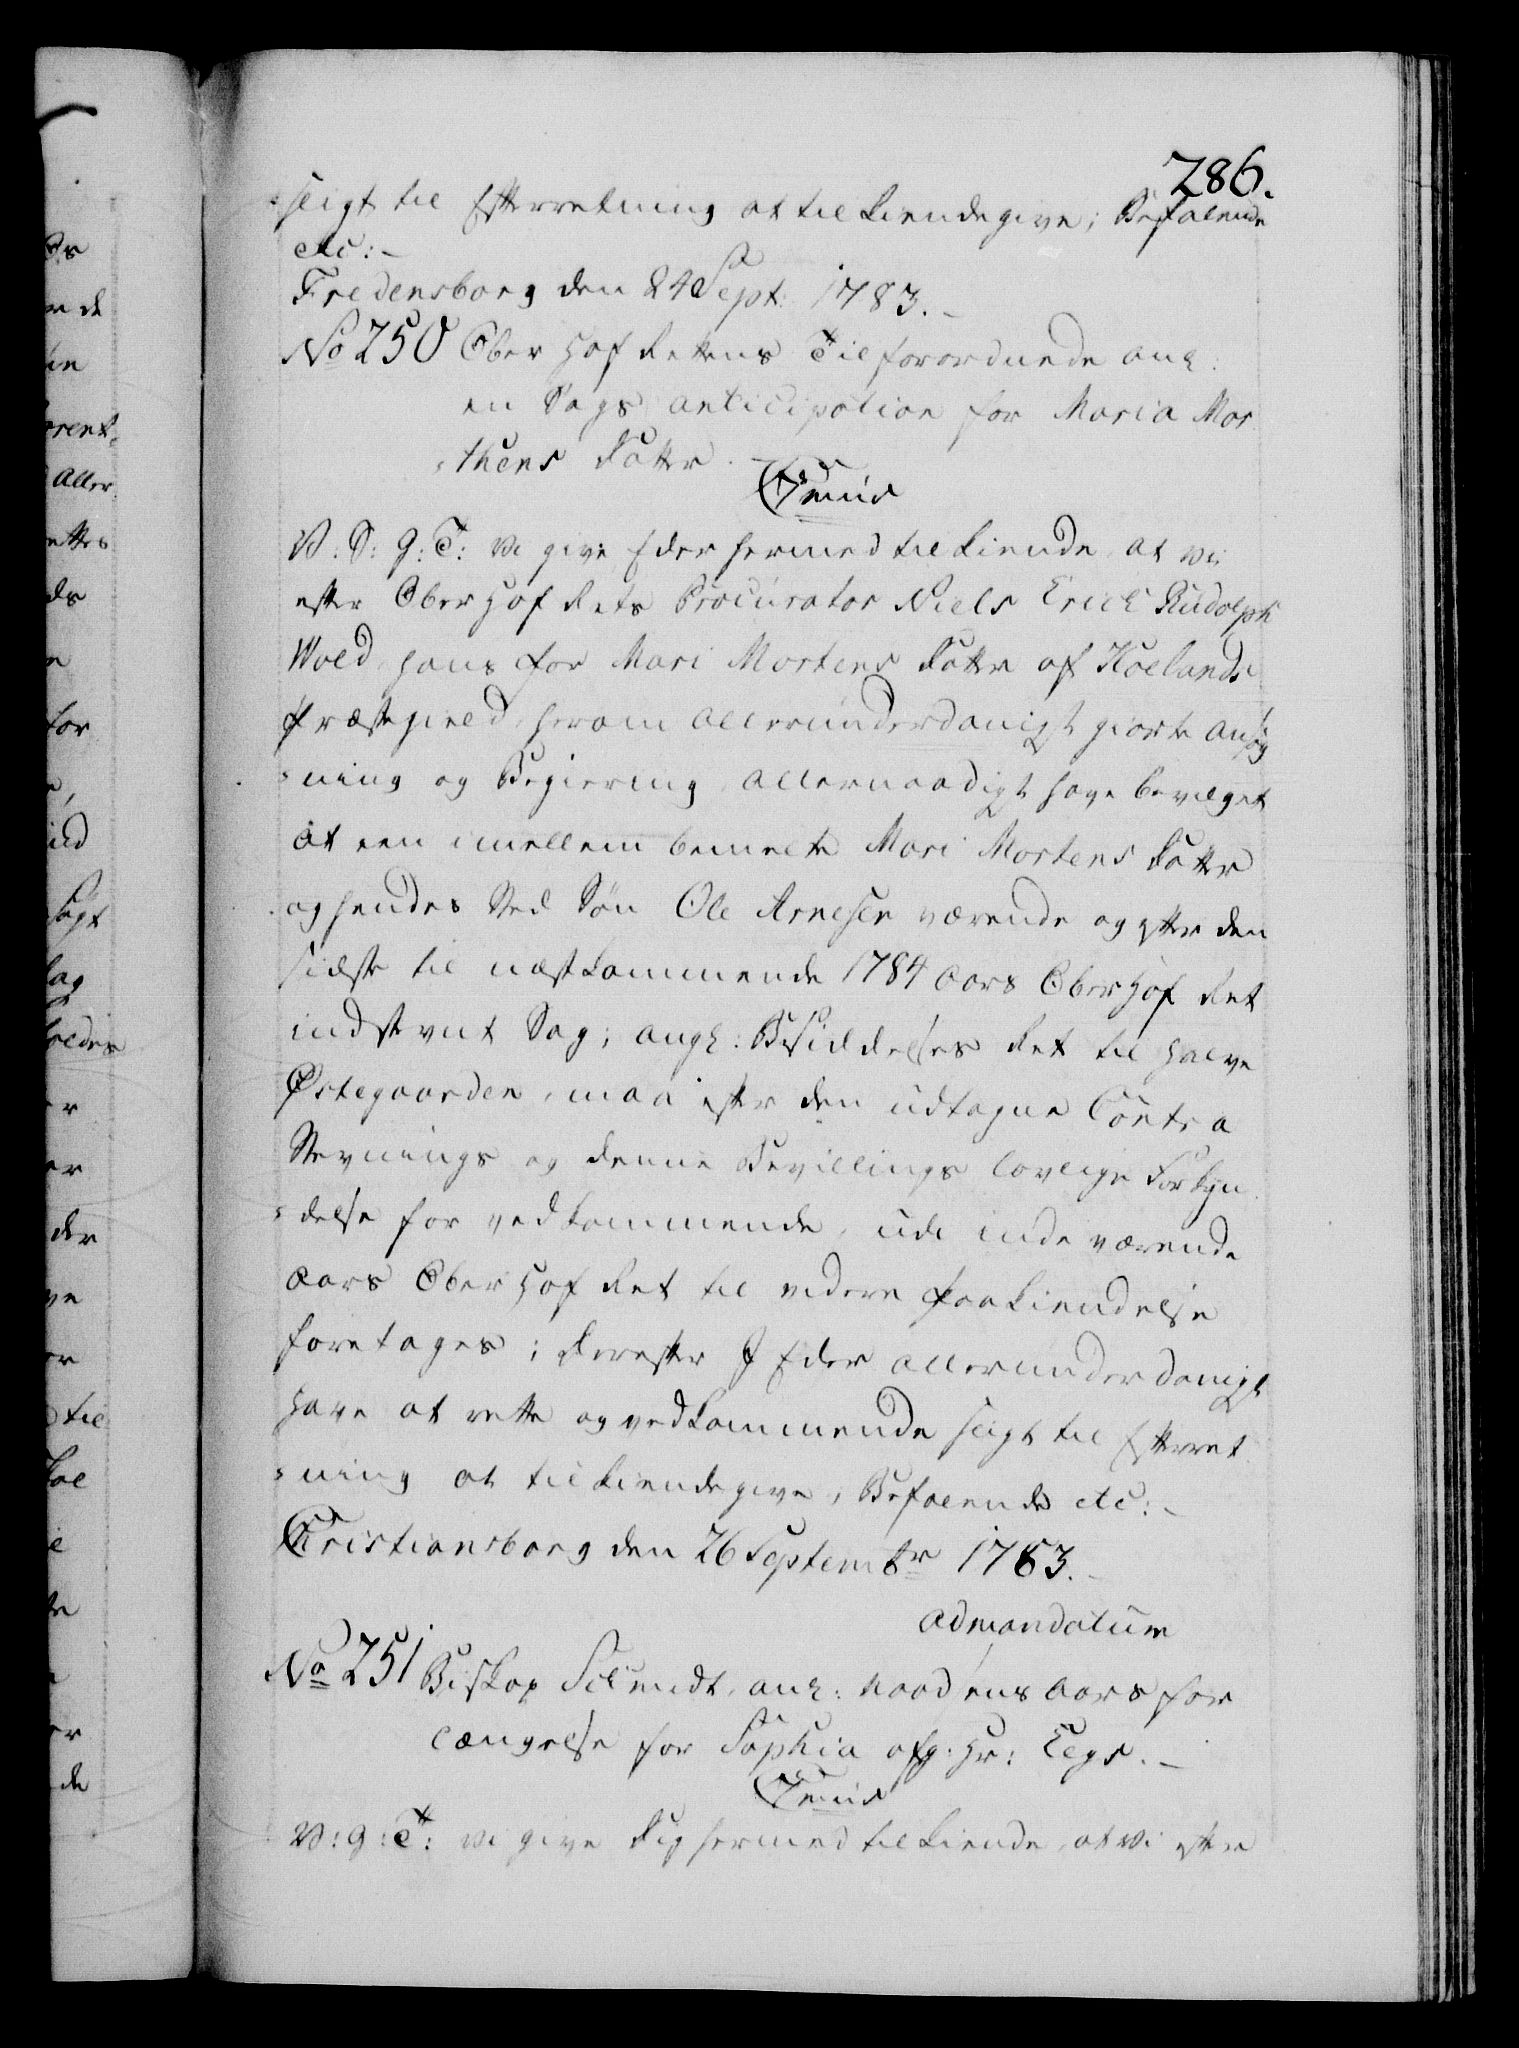 286.
-sligt til Efterretning at tilkiendegive; Befalende
etc:-
Fredensborg den 24 Sept: 1783.-
No 250 Ober Hof Rettens Tilforordnede ang:
en Sags anticipation for Maria Mor
-thens Datter.
C7mus
V: S: G: T: Vi give Eder hermed tilkiende, at vi
efter Ober Hof Rets Procurator Niels Erich Rudolph
Wold, hans for Mari Mortens Datter af Høelands
Præstegield, herom allerunderdanigst giorte Ansøg
-ning og Begiering, allernaadigst have bevilget
at een imellem bemelte Mari Mortens Datter
og hendes Sted Søn Ole Arnesen værende og efter den
sidste til næstkommende 1784 Aars Ober Hof Ret
indstevnt Sag; angl: Besiddelses Ret til halve
Østegaarden, maa efter den udtagne Contra
Stevnings og denne Bevillings lovlige Forkyn
-delse for vedkommende, udi inde værende
Aars Ober Hof Ret til videre Paakiendelse
foretages; Derefter I Eder allerunderdanigst
have at rette og vedkommende sligt til Efterret
-ning at tilkiendegive, Befalende etc:-
Christiansborg den 26 Septembr 1783.-
admandatum
No 251 Biskop Schmidt, ang: Naadens Aars for
længelse for Sophia afg: Hr: Legs.-
C7mus
V: G: T: Vi give Dig hermed tilkiende, at Vi efter